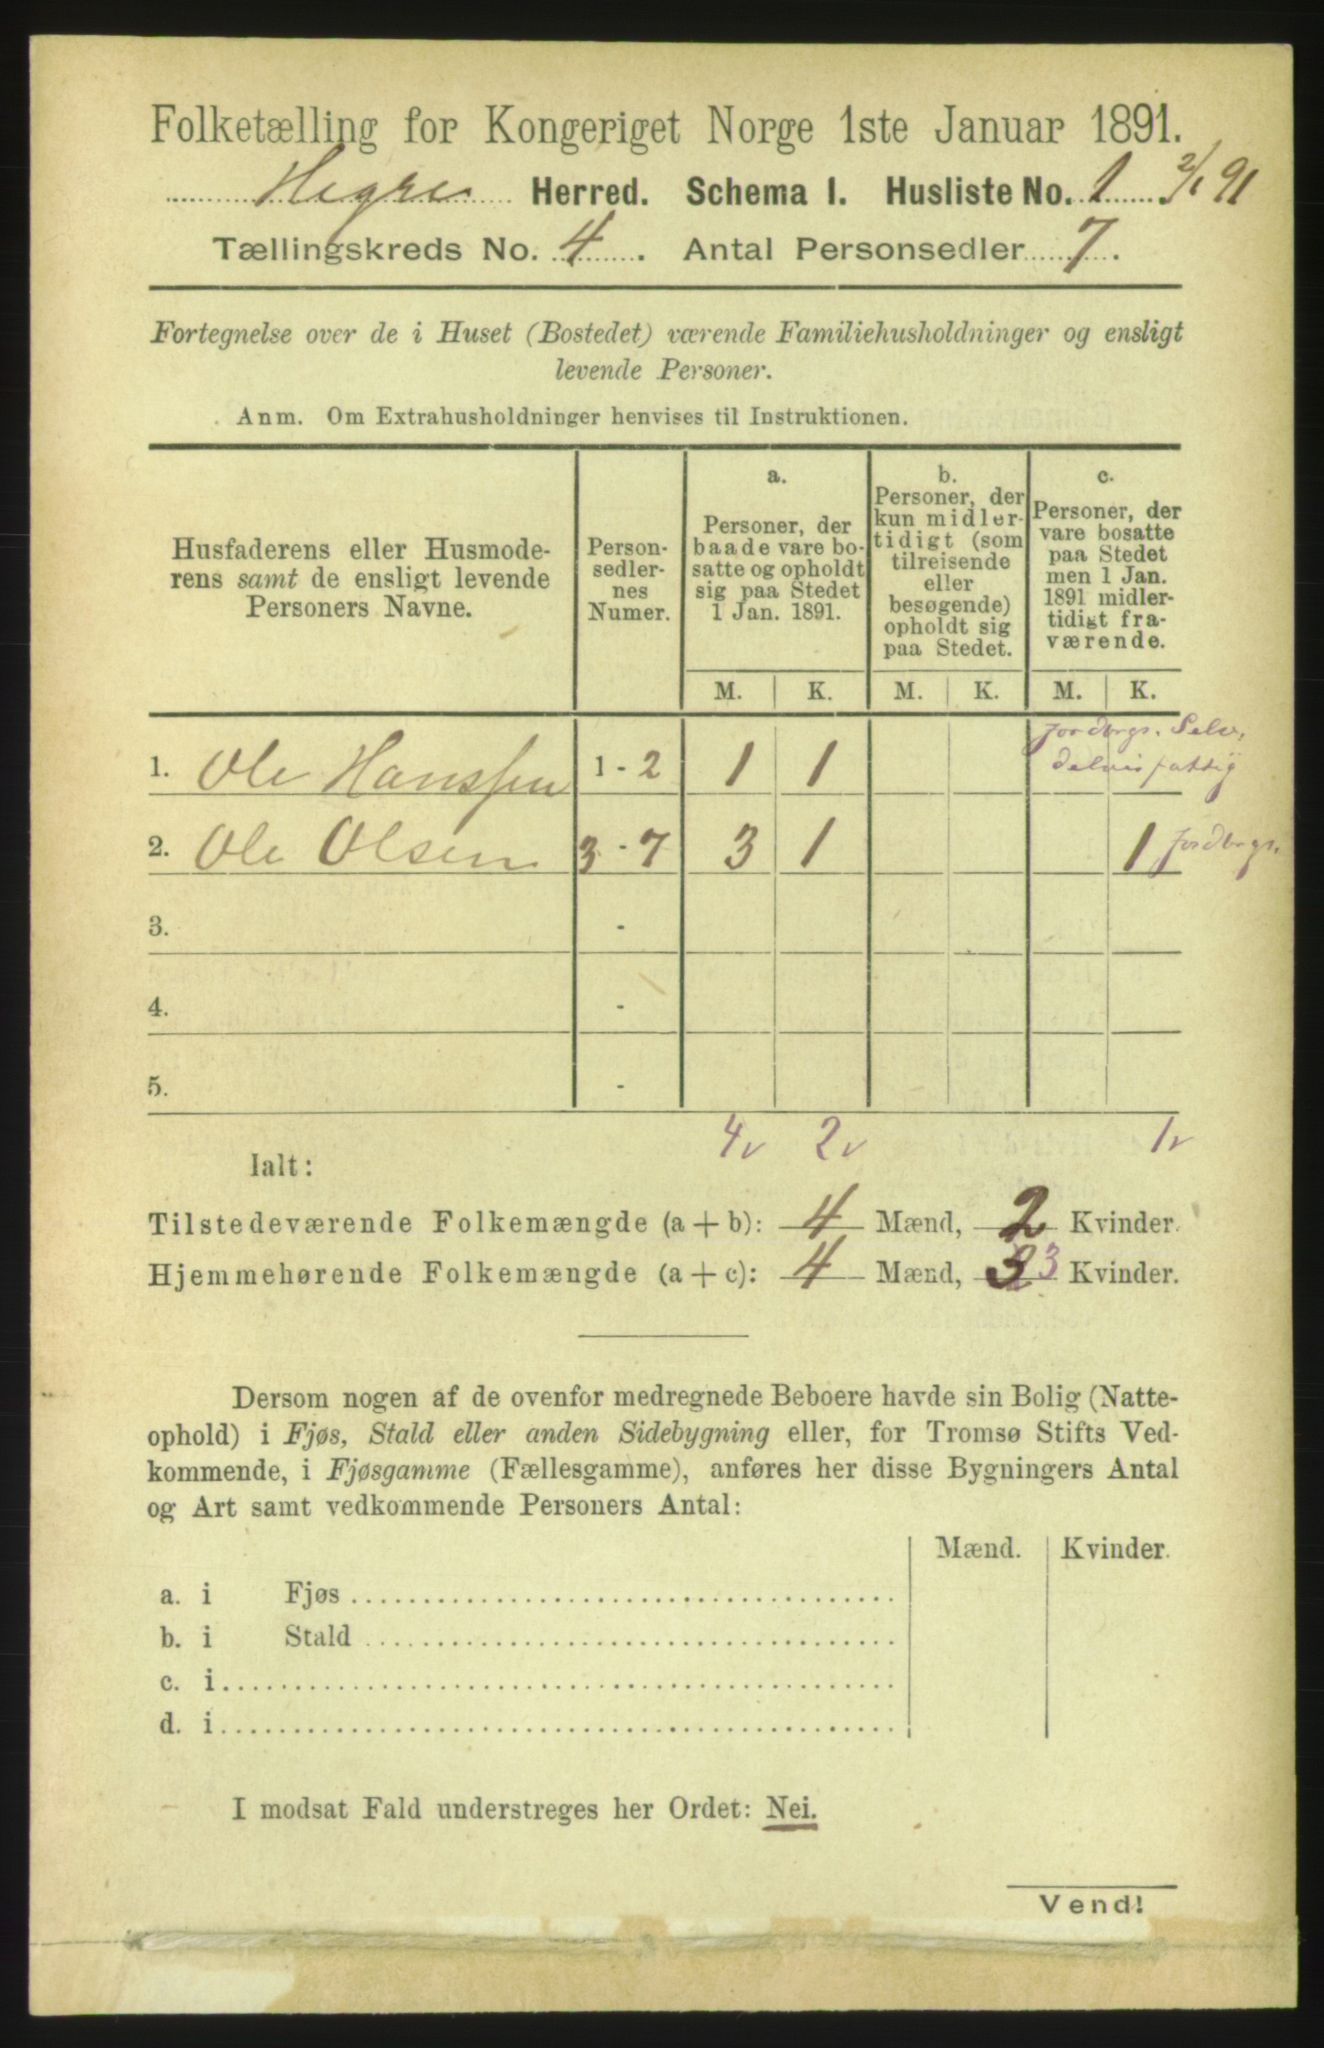 Folketælling for Kongeriget Norge 1ste Januar 1891.
Hegre Herred. Schema I. Husliste No. 1 2/1 91
Tællingskreds No. 4. Antal Personsedler 7.
Fortegnelse over de i Huset (Bostedet) værende Familiehusholdninger og ensligt
levende Personer.
Anm. Om Extrahusholdninger henvises til Instruktionen.
Husfaderens eller Husmode-
rens samt de ensligt levende
Personers Navne.
Person-
sedler-
nes
Numer.
a.
Personer, der
baade vare bo-
satte og opholdt
sig paa Stedet
1 Jan. 1891.
b.
Personer, der
kun midler-
tidigt (som
tilreisende
eller
besøgende)
opholdt sig
paa Stedet.
c.
Personer, der
vare bosatte
paa Stedet
men 1 Jan.
1891 midler-
tidigt fra-
værende.
M. K. M. K. M. K.
jordbrgs. Selv.
1. Ole Hanssen 1 - 2 1 1 delvis fattig
2. Ole Olsen 3 - 7 3 1 1 jordbrgs.
3. -
4. -
5. -
4v 2v 1v
Ialt:
Tilstedeværende Folkemængde (a + b): 4 Mænd, 2 Kvinder.
Hjemmehørende Folkemængde (a + c): 4 Mænd, 3 3 Kvinder.
Dersom nogen af de ovenfor medregnede Beboere havde sin Bolig (Natte-
ophold) i Fjøs, Stald eller anden Sidebygning eller, for Tromsø Stifts Ved-
kommende, i Fjøsgamme (Fællesgamme), anføres her disse Bygningers Antal
og Art samt vedkommende Personers Antal:
Mænd. Kvinder.
a. i Fjøs
b. i Stald
c. i
d. i
I modsat Fald understreges her Ordet: Nei.
Vend!